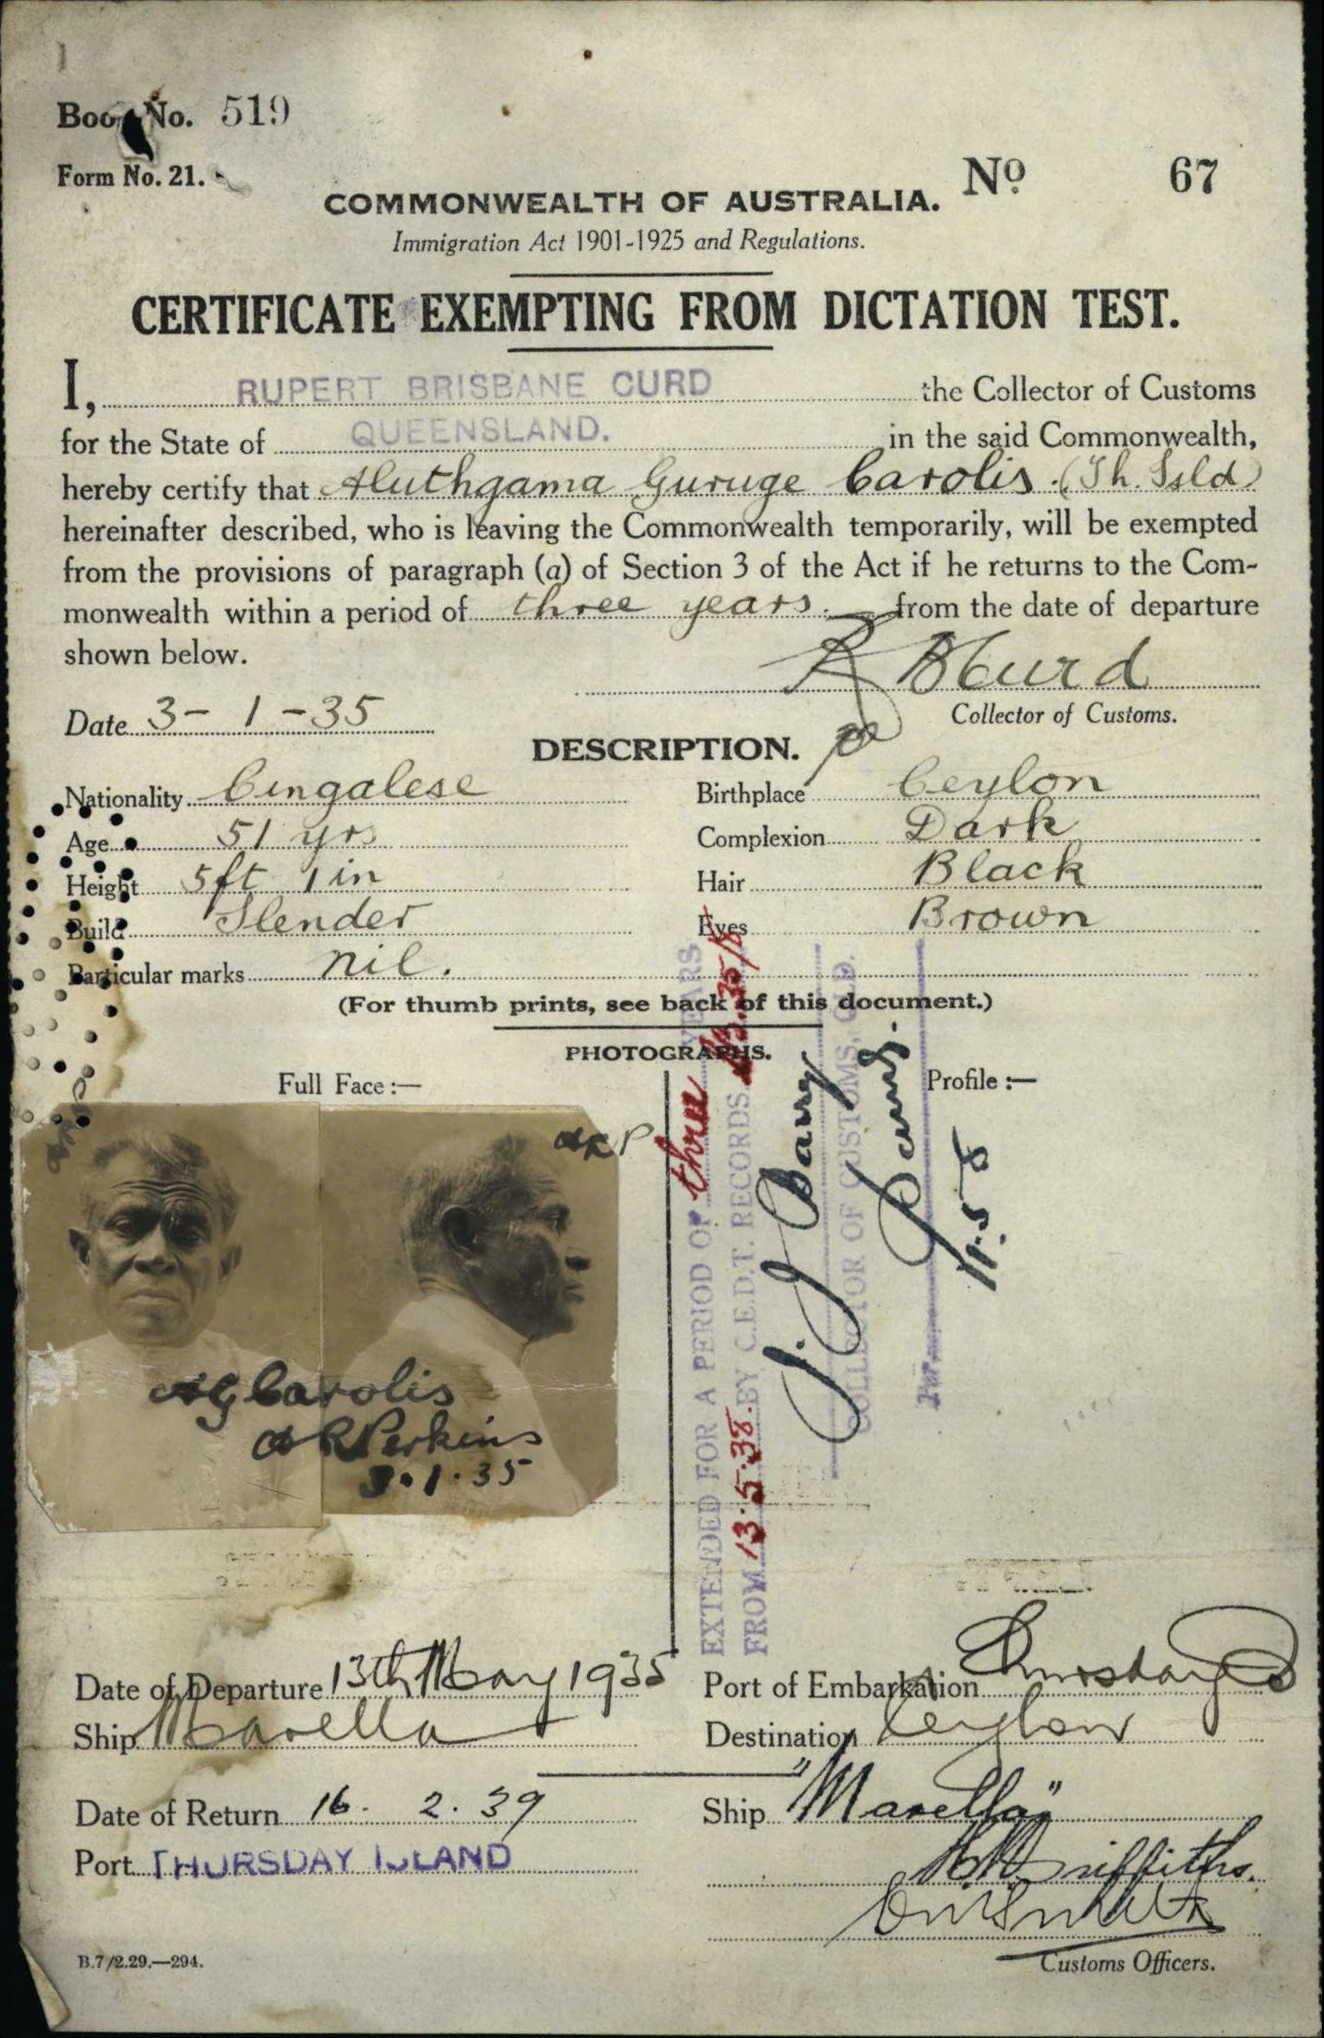 Book No. 519
Form No. 21.
No. 67
COMMONWEALTH OF AUSTRALIA.
Immigration Act 1901-1925 and Regulations.
CERTIFICATE EXEMPTING FROM DICTATION TEST.
I, RUPERT BRISBANE CURD the Collector of Customs
for the State of QUEENSLAND. in the said Commonwealth,
hereby certify that Aluthgama Guruge Carolis. (Th. Isld)
hereinafter described, who is leaving the Commonwealth temporarily, will be exempted
from the provisions of paragraph (a) of Section 3 of the Act if he returns to the Com-
monwealth within a period of three years. from the date of departure
shown below.
R B Curd
Date 3-1-35
Collector of Customs.
DESCRIPTION.
Nationality Cingalese
Birthplace Ceylon
Age 51 yrs
Complexion Dark
Height 5ft 1in
Hair Black
Build Slender
Eyes Brown
Particular marks nil.
(For thumb prints, see back of this document.)
PHOTOGRAPHS.
Full Face :—
Profile :—
ARP
AG Carolis
A R Perkins
3.1.35
EXTENDED FOR A PERIOD OF three YEARS
FROM 13.5.38. BY C.E.D.T. RECORDS
COLLECTOR OF CUSTOMS, QLD.
Date of Departure 13th May 1935
Port of Embarkation Thursday Id
Ship Marella
Destination Ceylon
Date of Return 16. 2. 39
Ship "Marella"
Port THURSDAY ISLAND
Griffiths.
Customs Officers.
B.7/2.29.—294.